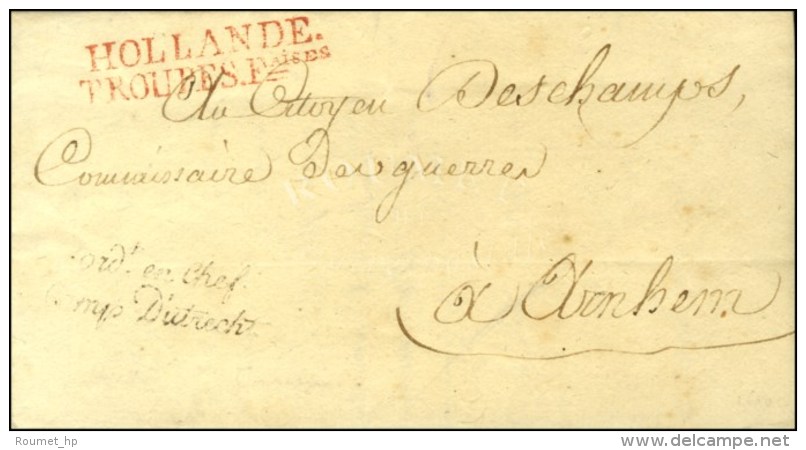 HOLLANDE.
TROUPES.Faises
Au Citoyen Deschamps,
Commissaire Des guerres
à Arnhem
ord.r en Chef
Camp D'utrecht
Roumet_hp
www.delcampe.net